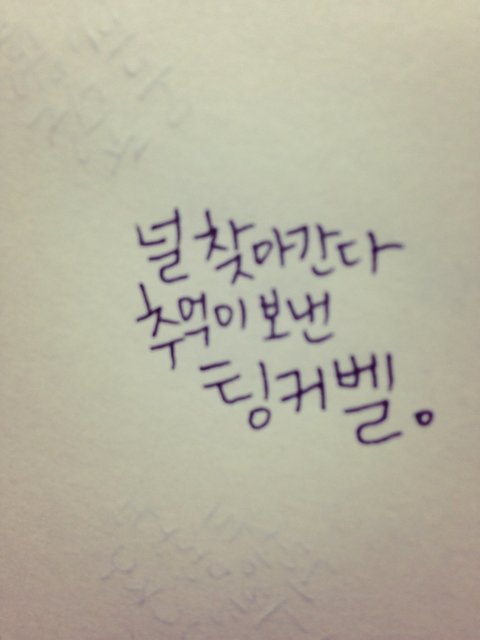 널 찾아간다
추억이 보낸
팅커벨。